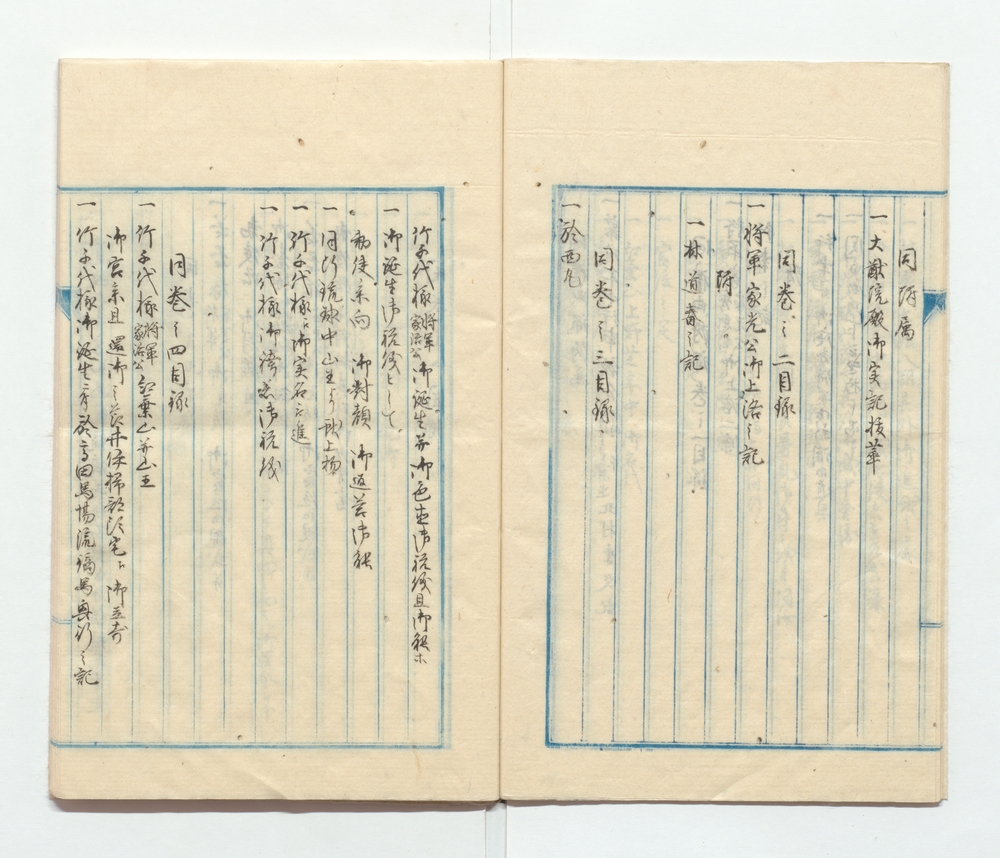 同附属
一 大猷院殿御実記抜萃
同巻之二目録
一 将軍家光公御上洛之記
附
一 林道春之記
同巻之三目録
一 於西丸
竹千代様将軍家治公御誕生并御色直御祝儀且御能等
一 御誕生御祝儀として
勅使参向 御対顔 御返答御能
一 同断琉球中山王より献上物
一 竹千代様江御実名被進
一 竹千代様御満悦御祝儀
同巻之四目録
一 竹千代様将軍家治公紅葉山并山王
御宮参且還御之節井伊掃部頭宅江御立寄
一 竹千代様御誕生ニ付於高田馬場流鏑馬興行之記